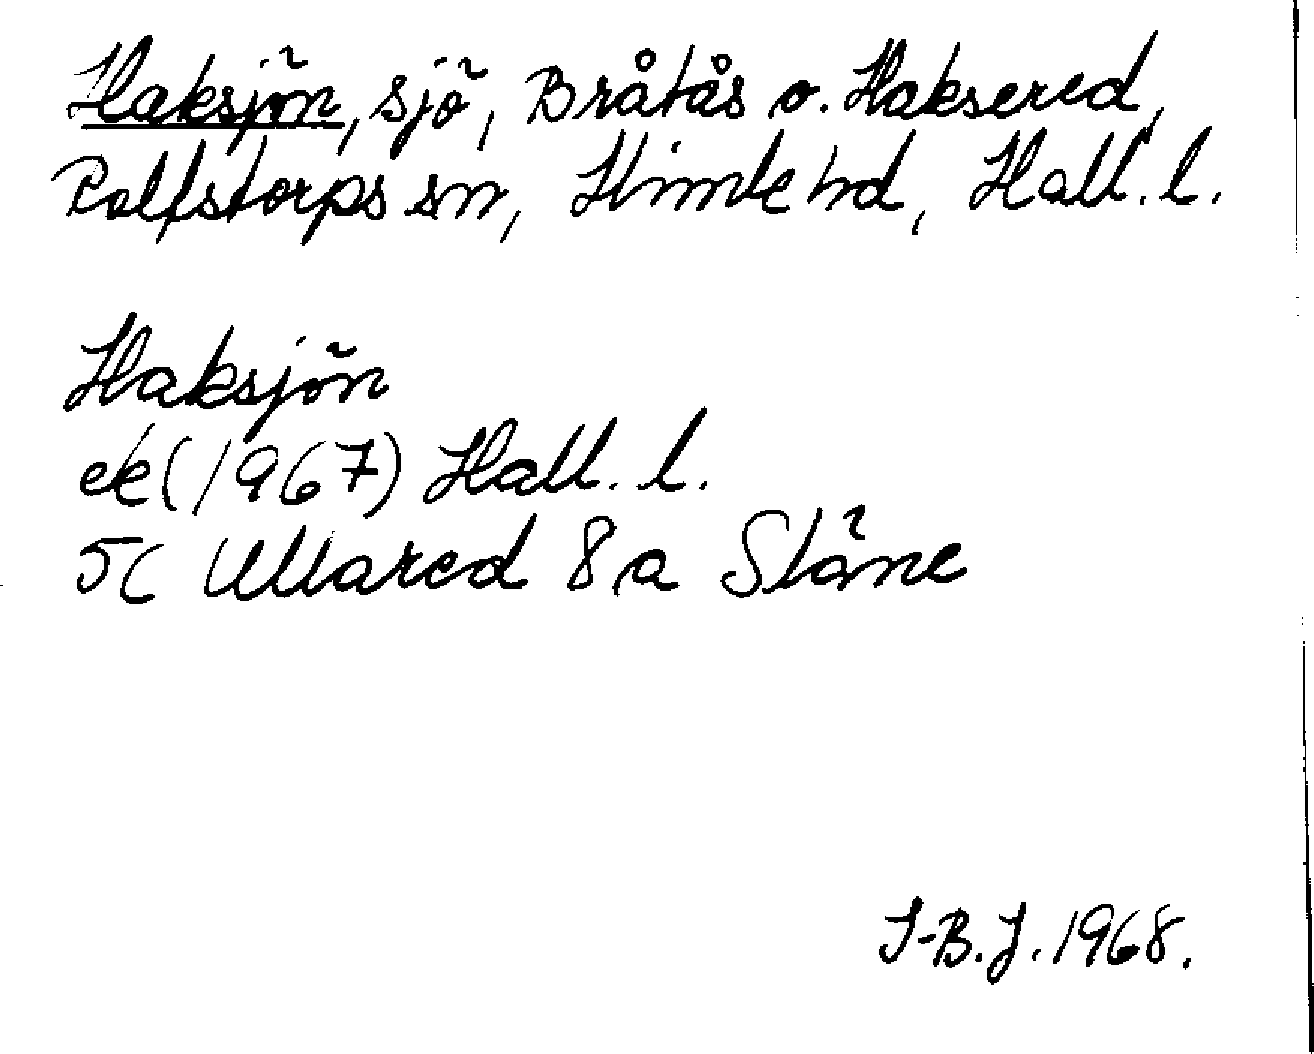 Haksjön, sjö, Bråtås o. Haksered,
Rolfstorps sn, Himle hd, Hall. l.
Haksjön
ek (1967) Hall. l.
5C Ullared 8 a Slåne
J-B.J. 1968.